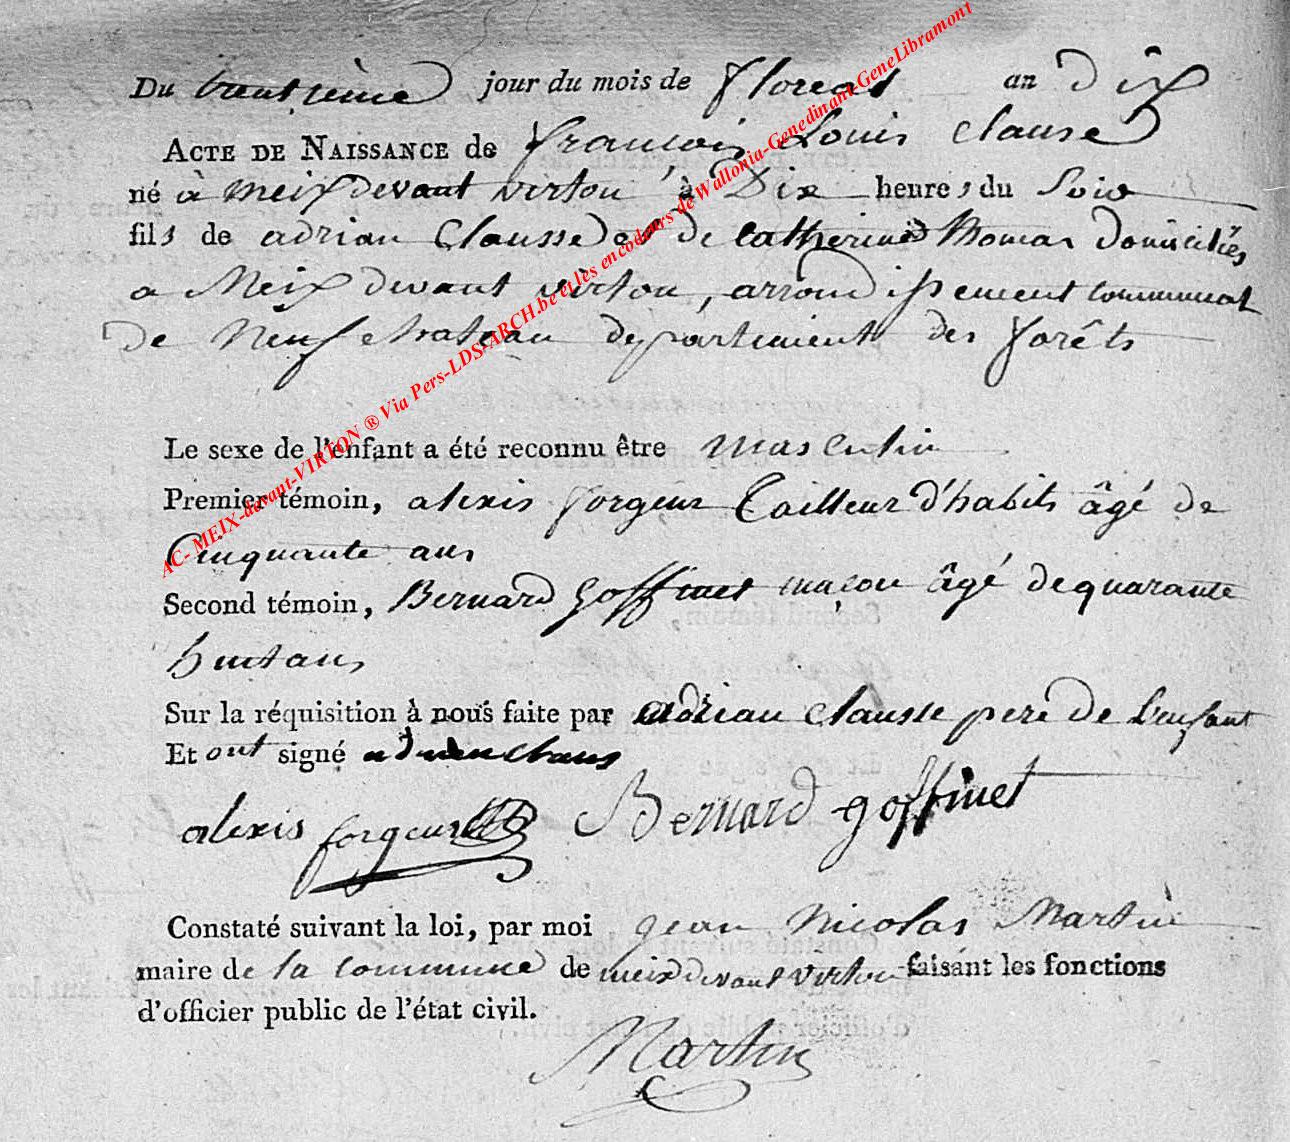 Du trentième jour du mois de floreal an dix
ACTE DE NAISSANCE de francois Louis clause
né à meix devant virton, à Dix heures du Soir
fils de adrian Clausse et de catherine Thomas domiciliés
a Meix devant virton, arrondissement communal
de Neufchateau departement des forêts
Le sexe de l'enfant a été reconnu être masculin
Premier témoin, alexis forgeur tailleur d'habits âgé de
Cinquante ans
Second témoin, Bernard Goffinet maçon âgé de quarante
huit ans
Sur la réquisition à nous faite par adrian clausse pere de L'enfant
Et ont signé adrien claus
alexis forgeur Bernard goffinet
Constaté suivant la loi, par moi jean Nicolas Martin
maire de la commune de meix devant virton faisant les fonctions
d'officier public de l'état civil.
Martin
AC- MEIX-devant-VIRTON ® Via Pers-LDS-ARCH.be et les encodeurs de Wallonia-Genedinant-GeneLibramont